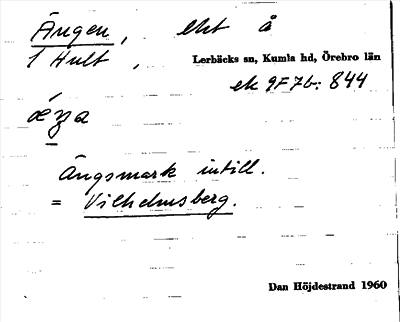 Ängen, ekt å
1 Hult, Lerbäcks sn, Kumla hd, Örebro län
ek 9F7b: 844
Ängsmark intill.
= Vilhelmsberg.
Dan Höjdestrand 1960